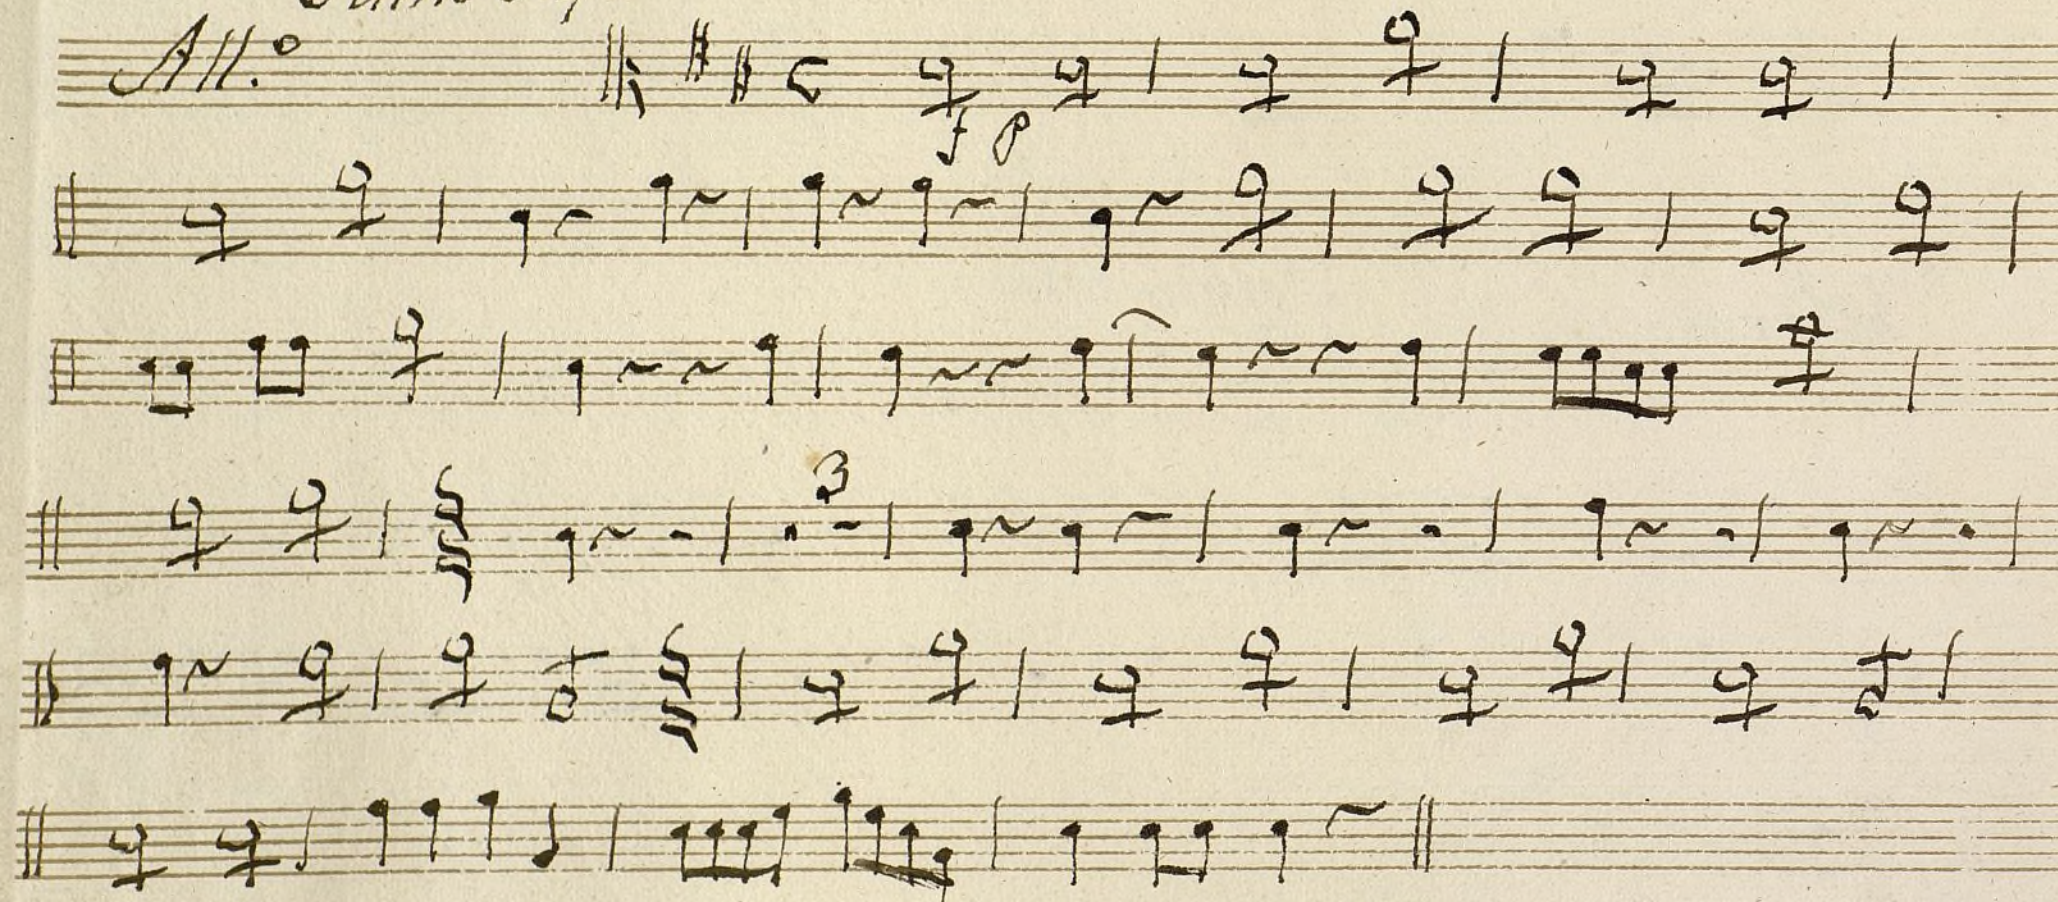 All.o
f p
3